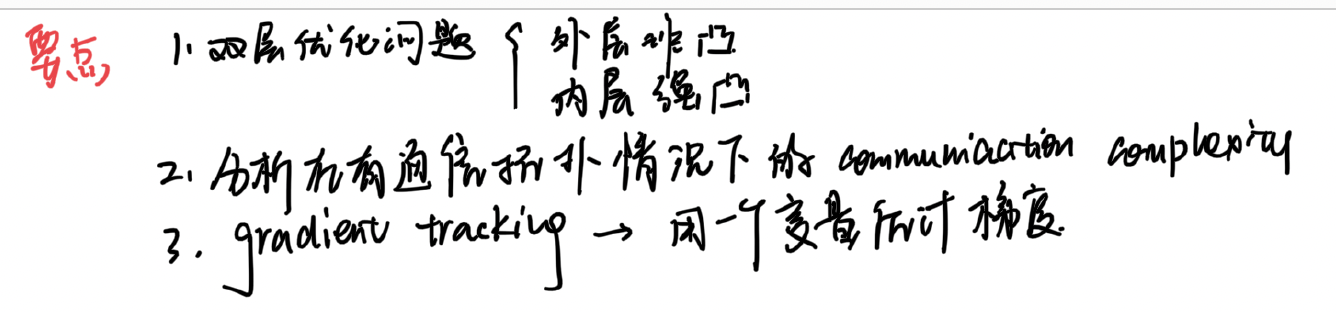 要点 1. 双层优化问题 { 外层非凸
内层强凸
2. 分析在有通信拓扑情况下的 communiaction complexity
3. gradient tracking → 用一个变量估计梯度.